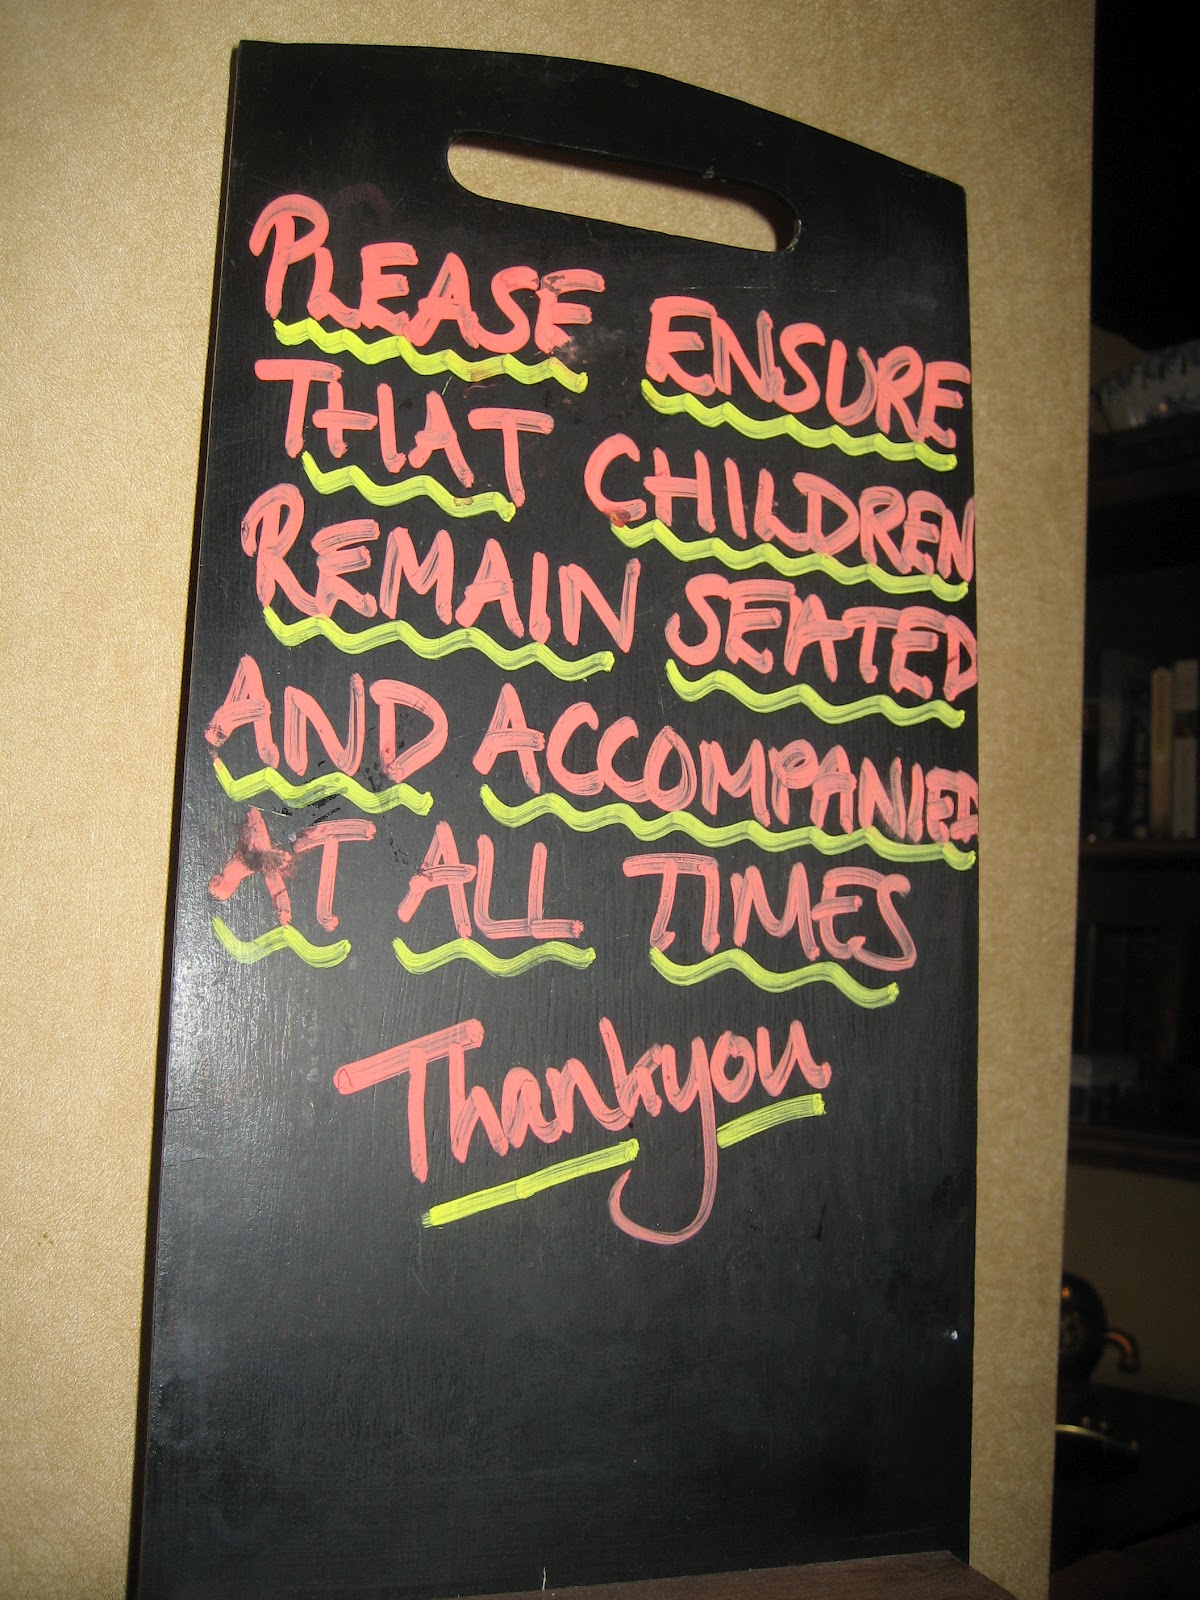 PLEASE ENSURE
THAT CHILDREN
REMAIN SEATED
AND ACCOMPANIED
AT ALL TIMES
Thankyou